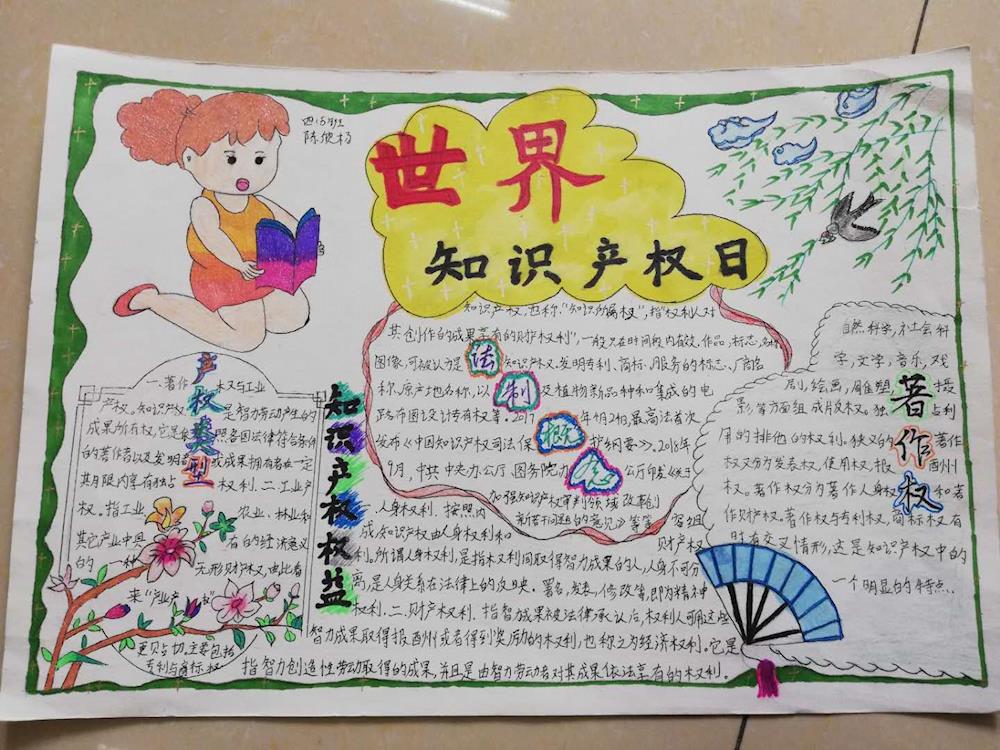 四(5)班
世界
知识产权日
知识产权,也称"知识所属权",指"权利人对
其创作的成果享有的财产权利",一般只在时间段内有效.作品,标志,名称
图像,可被认为是知识产权.发明专利、商标、服务的标志、厂商名
称、原产地名称,以及植物新品种和集成的电
路布图设计专有权等.2017年4月24日,最高法首次
发布《中国知识产权司法保护纲要》.2018年
9月,中共中央办公厅,国务院办公厅印发《关于
加强知识产权审判领域改革创
新若干问题的意见》等等
法制概念
产权类型
一.著作权与工业
产权。知识产权是智力劳动产生的
成果所有权,它是依照各国法律符合条件
的著作者以及发明者或成果拥有者在一定
其月限内容有独占权利.二.工业产
权.指工业、农业、林业和
其它产业中具有的经济意义
的一种无形财产权,由此看
来"产业产权"
更贝占切.主要包括
专利与商标权
知识产权权益
人身权利、按照内
成知识产权由人身权利和财产权
利。所谓人身权利,是指权利同取得智力成果的人,人身不可分
离,是人身关系在法律上的反映.署名,发表,修改等,即为精神
权利.二.财产权利.指智成果被法律承认后,权利人可通这些
智力成果取得报酬州或者得到奖励的权利,也称之为经济权利.它是
指智力创造性劳动取得的成果,并且是由智力劳动者对其成果依法享有的权利.
著作权
自然科学,社会科
学,文学,音乐,戏
剧,绘画,雕塑,摄
影等方面组成片反权.独占利
用的排他的权利.狭义的著作
权又分为发表权,使用权,报酬州
权。著作权分为著作人身权和著
作财产权。著作权与专利权,商标权有
时有交叉情形,这是知识产权中的
一个明显的特点...